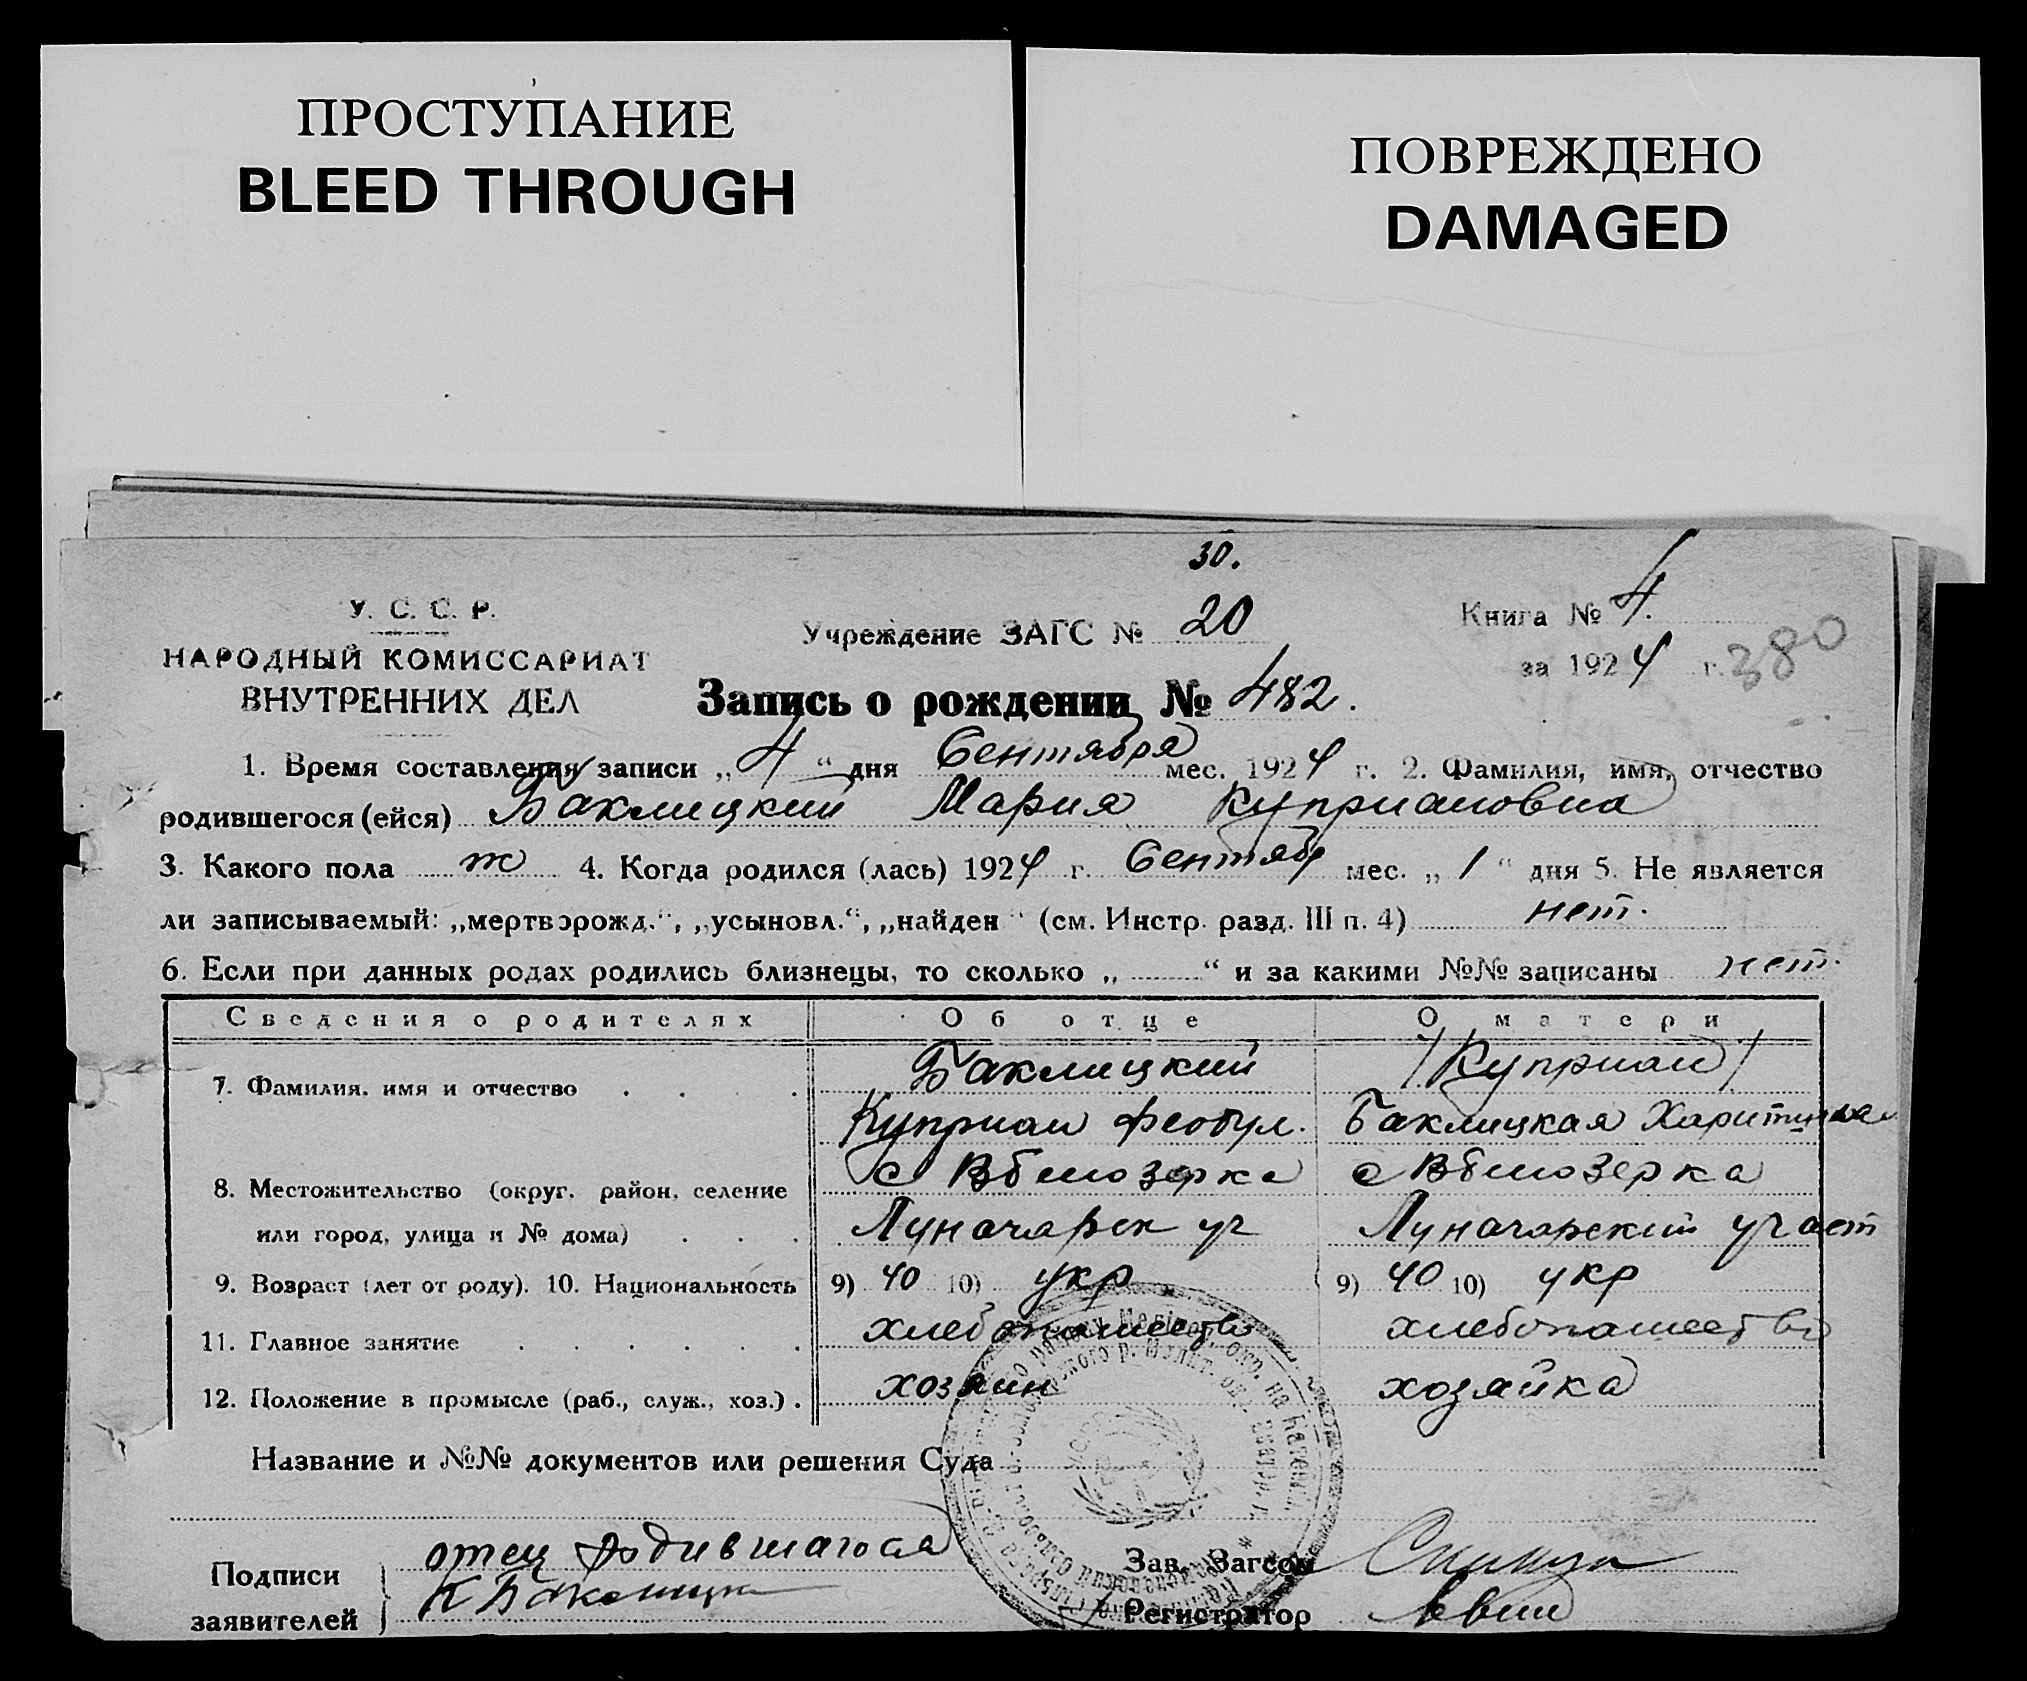 ПРОСТУПАНИЕ
BLEED THROUGH
ПОВРЕЖДЕНО
DAMAGED
30.
У. С. С. Р.
НАРОДНЫЙ КОМИССАРИАТ
ВНУТРЕННИХ ДЕЛ
Учреждение ЗАГС № 20
Книга № 4.
за 1924 г. 380
Запись о рождении № 482.
1. Время составления записи „4“ дня Сентября мес. 1924 г. 2. Фамилия, имя, отчество
родившегося (ейся) Баклицкий Мария Куприановна
3. Какого пола ж 4. Когда родился (лась) 1924 г. Сентябр мес. „1“ дня 5. Не является
ли записываемый: „мертворожд.“, „усыновл.“, „найден“ (см. Инстр. разд. III п. 4) нет.
6. Если при данных родах родились близнецы, то сколько „ “ и за какими №№ записаны нет.
Сведения о родителях Об отце О матери
7. Фамилия, имя и отчество Баклицкий /Куприан/
Куприан Баклицкая
8. Местожительство (округ. район, селение с с
или город, улица и № дома) Луначарск уч Луначарский участ
9. Возраст (лет от роду). 10. Национальность 9) 40 10) укр 9) 40 10) укр
11. Главное занятие хлебопашество хлебопашество
12. Положение в промысле (раб., служ., хоз.) хозяин хозяйка
Название и №№ документов или решения Суда
Подписи
заявителей
отец родившагося
Зав. Загсом
Регистратор